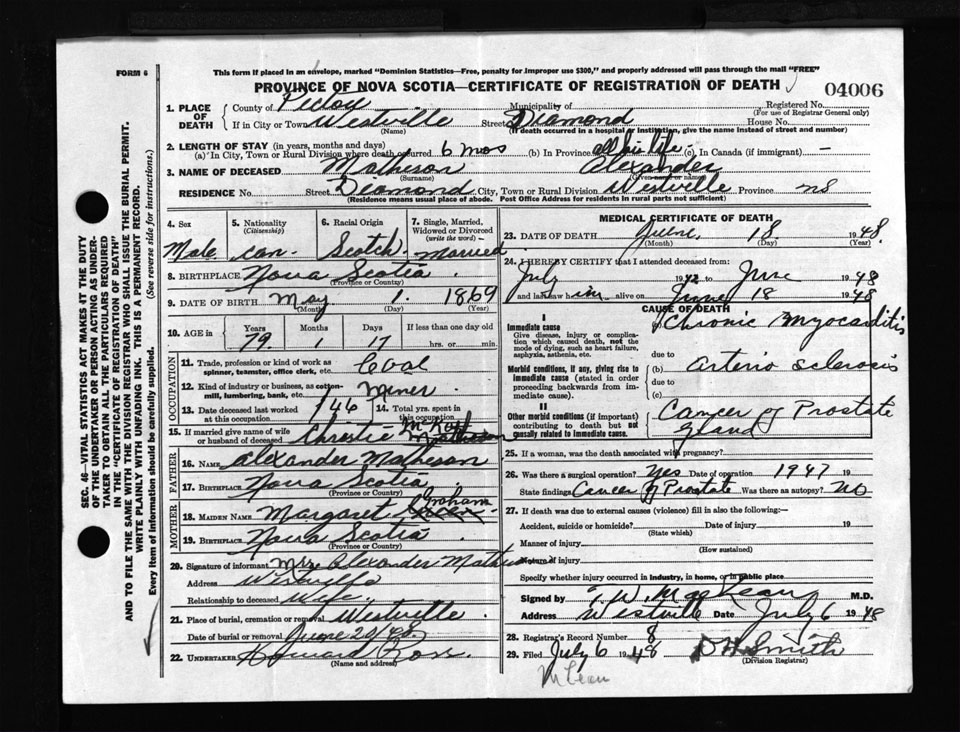 FORM 6
This form if placed in an envelope, marked "Dominion Statistics—Free, penalty for improper use $300," and properly addressed will pass through the mail "FREE"
PROVINCE OF NOVA SCOTIA—CERTIFICATE OF REGISTRATION OF DEATH
04006
1. PLACE OF DEATH
County of Pictou Municipality of Registered No.
(For use of Registrar General only)
If in City or Town Westville Street Diamond House No.
(Name) (If death occurred in a hospital or institution, give the name instead of street and number)
2. LENGTH OF STAY (in years, months and days)
(a) In City, Town or Rural Division where death occurred 6 mos (b) In Province all his life - (c) In Canada (if immigrant) —
3. NAME OF DECEASED Matheson Alexander
(Surname) (Given name or names)
RESIDENCE No. Street Diamond City, Town or Rural Division Westville Province NS
(Residence means usual place of abode. Post Office Address for residents in rural parts not sufficient)
4. Sex Male
5. Nationality (Citizenship) Can.
6. Racial Origin Scotch
7. Single, Married, Widowed or Divorced (write the word) Married
8. BIRTHPLACE Nova Scotia
(Province or Country)
9. DATE OF BIRTH May 1. 1869
(Month) (Day) (Year)
10. AGE in Years Months Days If less than one day old
79 1 17 hrs. or min.
OCCUPATION
11. Trade, profession or kind of work as spinner, teamster, office clerk, etc. Coal
12. Kind of industry or business, as cotton-mill, lumbering, bank, etc. Miner
13. Date deceased last worked at this occupation 14. Total yrs. spent in this occupation
15. If married give name of wife or husband of deceased Christie Matheson
FATHER
16. NAME Alexander Matheson
17. BIRTHPLACE Nova Scotia
(Province or Country)
MOTHER
18. MAIDEN NAME Margaret Graham
19. BIRTHPLACE Nova Scotia
(Province or Country)
20. Signature of informant Mrs Alexander Matheson
Address Westville
Relationship to deceased Wife.
21. Place of burial, cremation or removal Westville
Date of burial or removal June 20/48
22. UNDERTAKER Howard Ross.
(Name and address)
MEDICAL CERTIFICATE OF DEATH
23. DATE OF DEATH June, 18 1948
(Month) (Day) (Year)
24. I HEREBY CERTIFY that I attended deceased from:
July 1942 to June 1948
and last saw him alive on June 18 1948
CAUSE OF DEATH
I
Immediate cause
Give disease, injury or complication which caused death, not the mode of dying, such as heart failure, asphyxia, asthenia, etc.
Chronic Myocarditis
due to
Morbid conditions, if any, giving rise to immediate cause (stated in order proceeding backwards from immediate cause).
(b) Arterio Sclerosis
due to
(c)
II
Other morbid conditions (if important) contributing to death but not causally related to immediate cause.
Cancer of Prostate
gland
25. If a woman, was the death associated with pregnancy?
26. Was there a surgical operation? Yes Date of operation 1947 19
State findings Cancer of Prostate Was there an autopsy? No
27. If death was due to external causes (violence) fill in also the following:—
Accident, suicide or homicide? Date of injury 19
(State which)
Manner of injury
(How sustained)
Nature of injury
Specify whether injury occurred in industry, in home, or in public place
Signed by T. W. MacLean M.D.
Address Westville Date July 6 1948
28. Registrar's Record Number 8
29. Filed July 6 1948 D H Smith
(Division Registrar)
McLean
SEC. 46—VITAL STATISTICS ACT MAKES IT THE DUTY
OF THE UNDERTAKER OR PERSON ACTING AS UNDER-
TAKER TO OBTAIN ALL THE PARTICULARS REQUIRED
IN THE "CERTIFICATE OF REGISTRATION OF DEATH"
AND TO FILE THE SAME WITH THE DIVISION REGISTRAR WHO SHALL ISSUE THE BURIAL PERMIT.
WRITE PLAINLY WITH UNFADING INK. THIS IS A PERMANENT RECORD.
Every item of information should be carefully supplied. (See reverse side for instructions.)